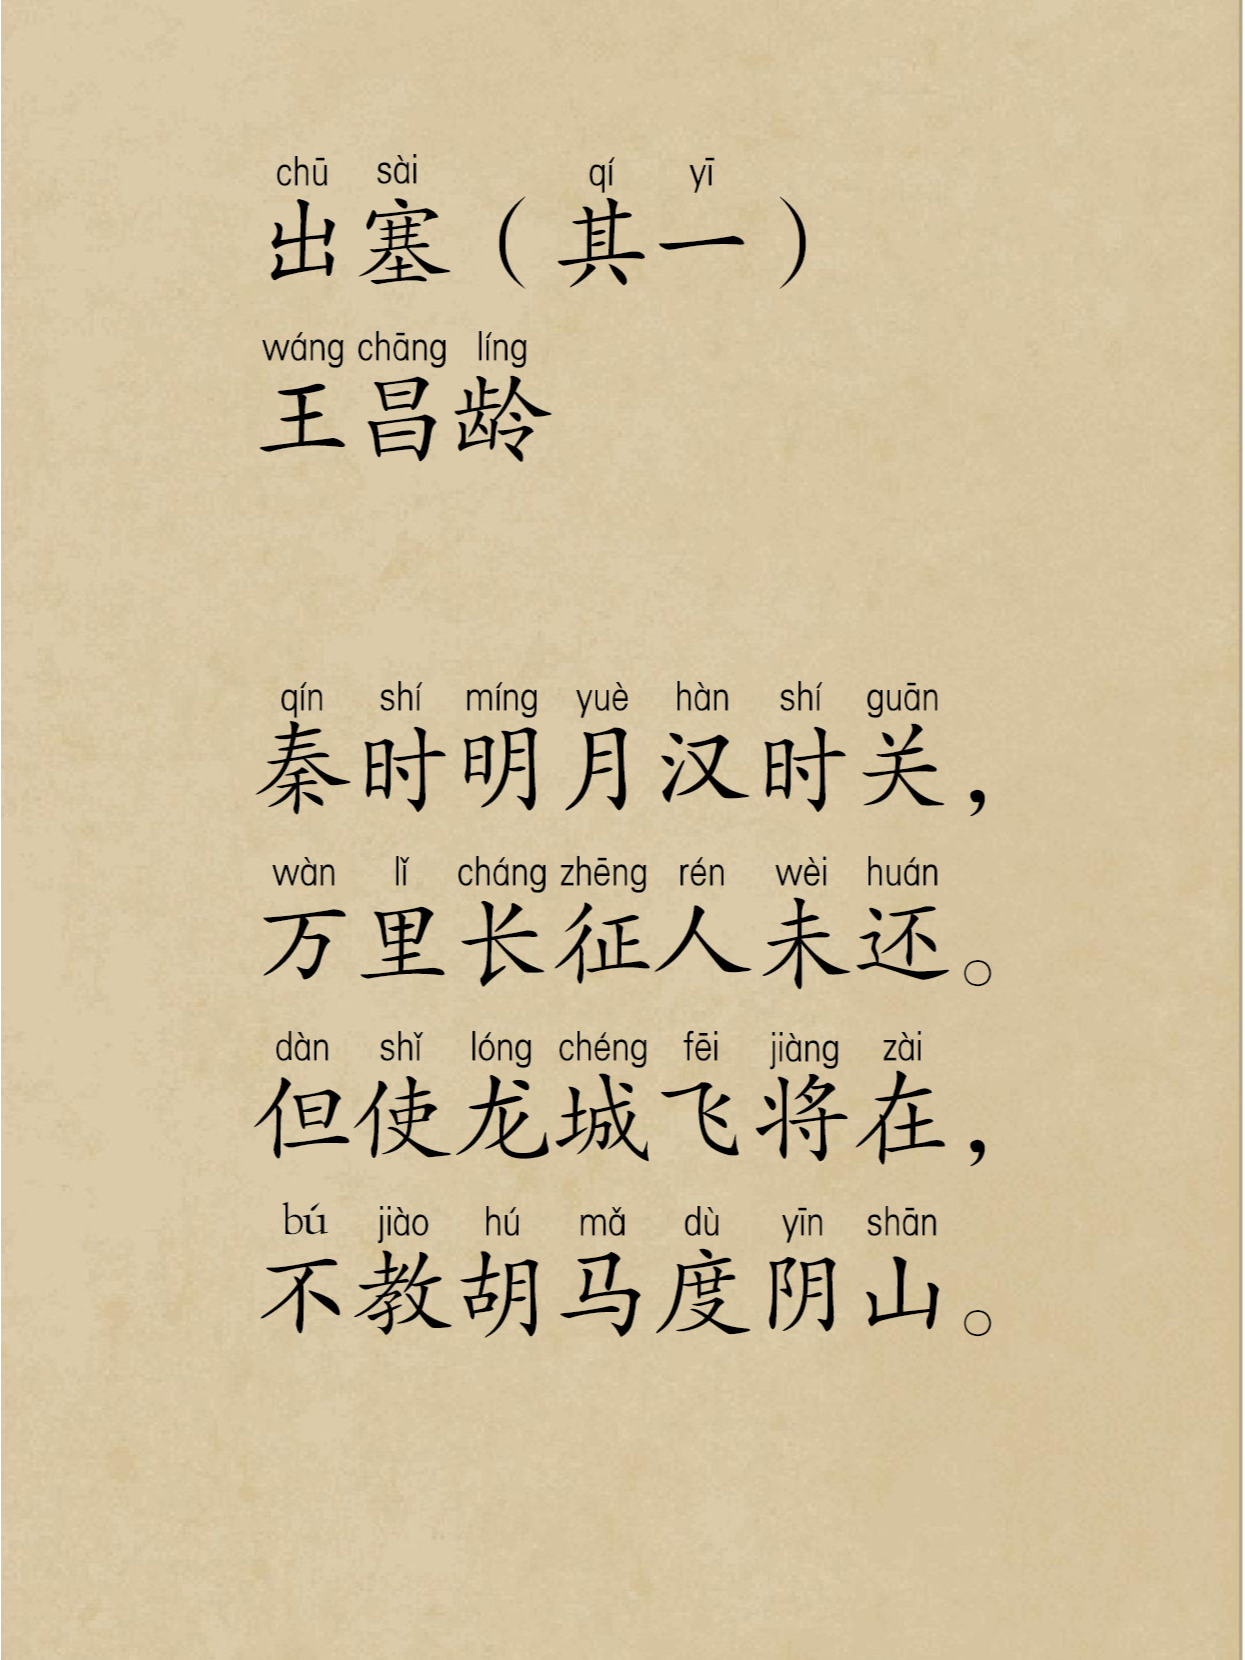 chū sài qí yī
出塞（其一）
wáng chāng líng
王昌龄
qín shí míng yuè hàn shí guān
秦时明月汉时关，
wàn lǐ cháng zhēng rén wèi huán
万里长征人未还。
dàn shǐ lóng chéng fēi jiàng zài
但使龙城飞将在，
bú jiào hú mǎ dù yīn shān
不教胡马度阴山。